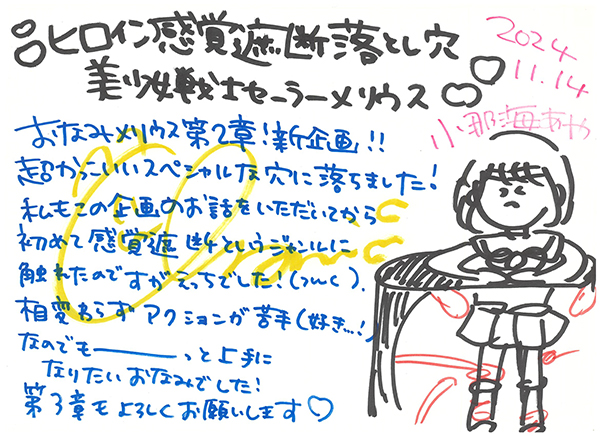 ヒロイン感覚遮断落とし穴
美少女戦士セーラーメリウス
2024
11.14
小那海あや
おなみメリウス第2章!新企画!!
超かっこいいスペシャルな穴に落ちました!
私もこの企画のお話をいただいてから
初めて感覚遮断というジャンルに
触れたのですがえっちでした!(つんく).
相変わらずアクションが苦手(好き…!)
なのでも―――っと上手に
なりたいおなみでした!
第3章もよろしくお願いします♡